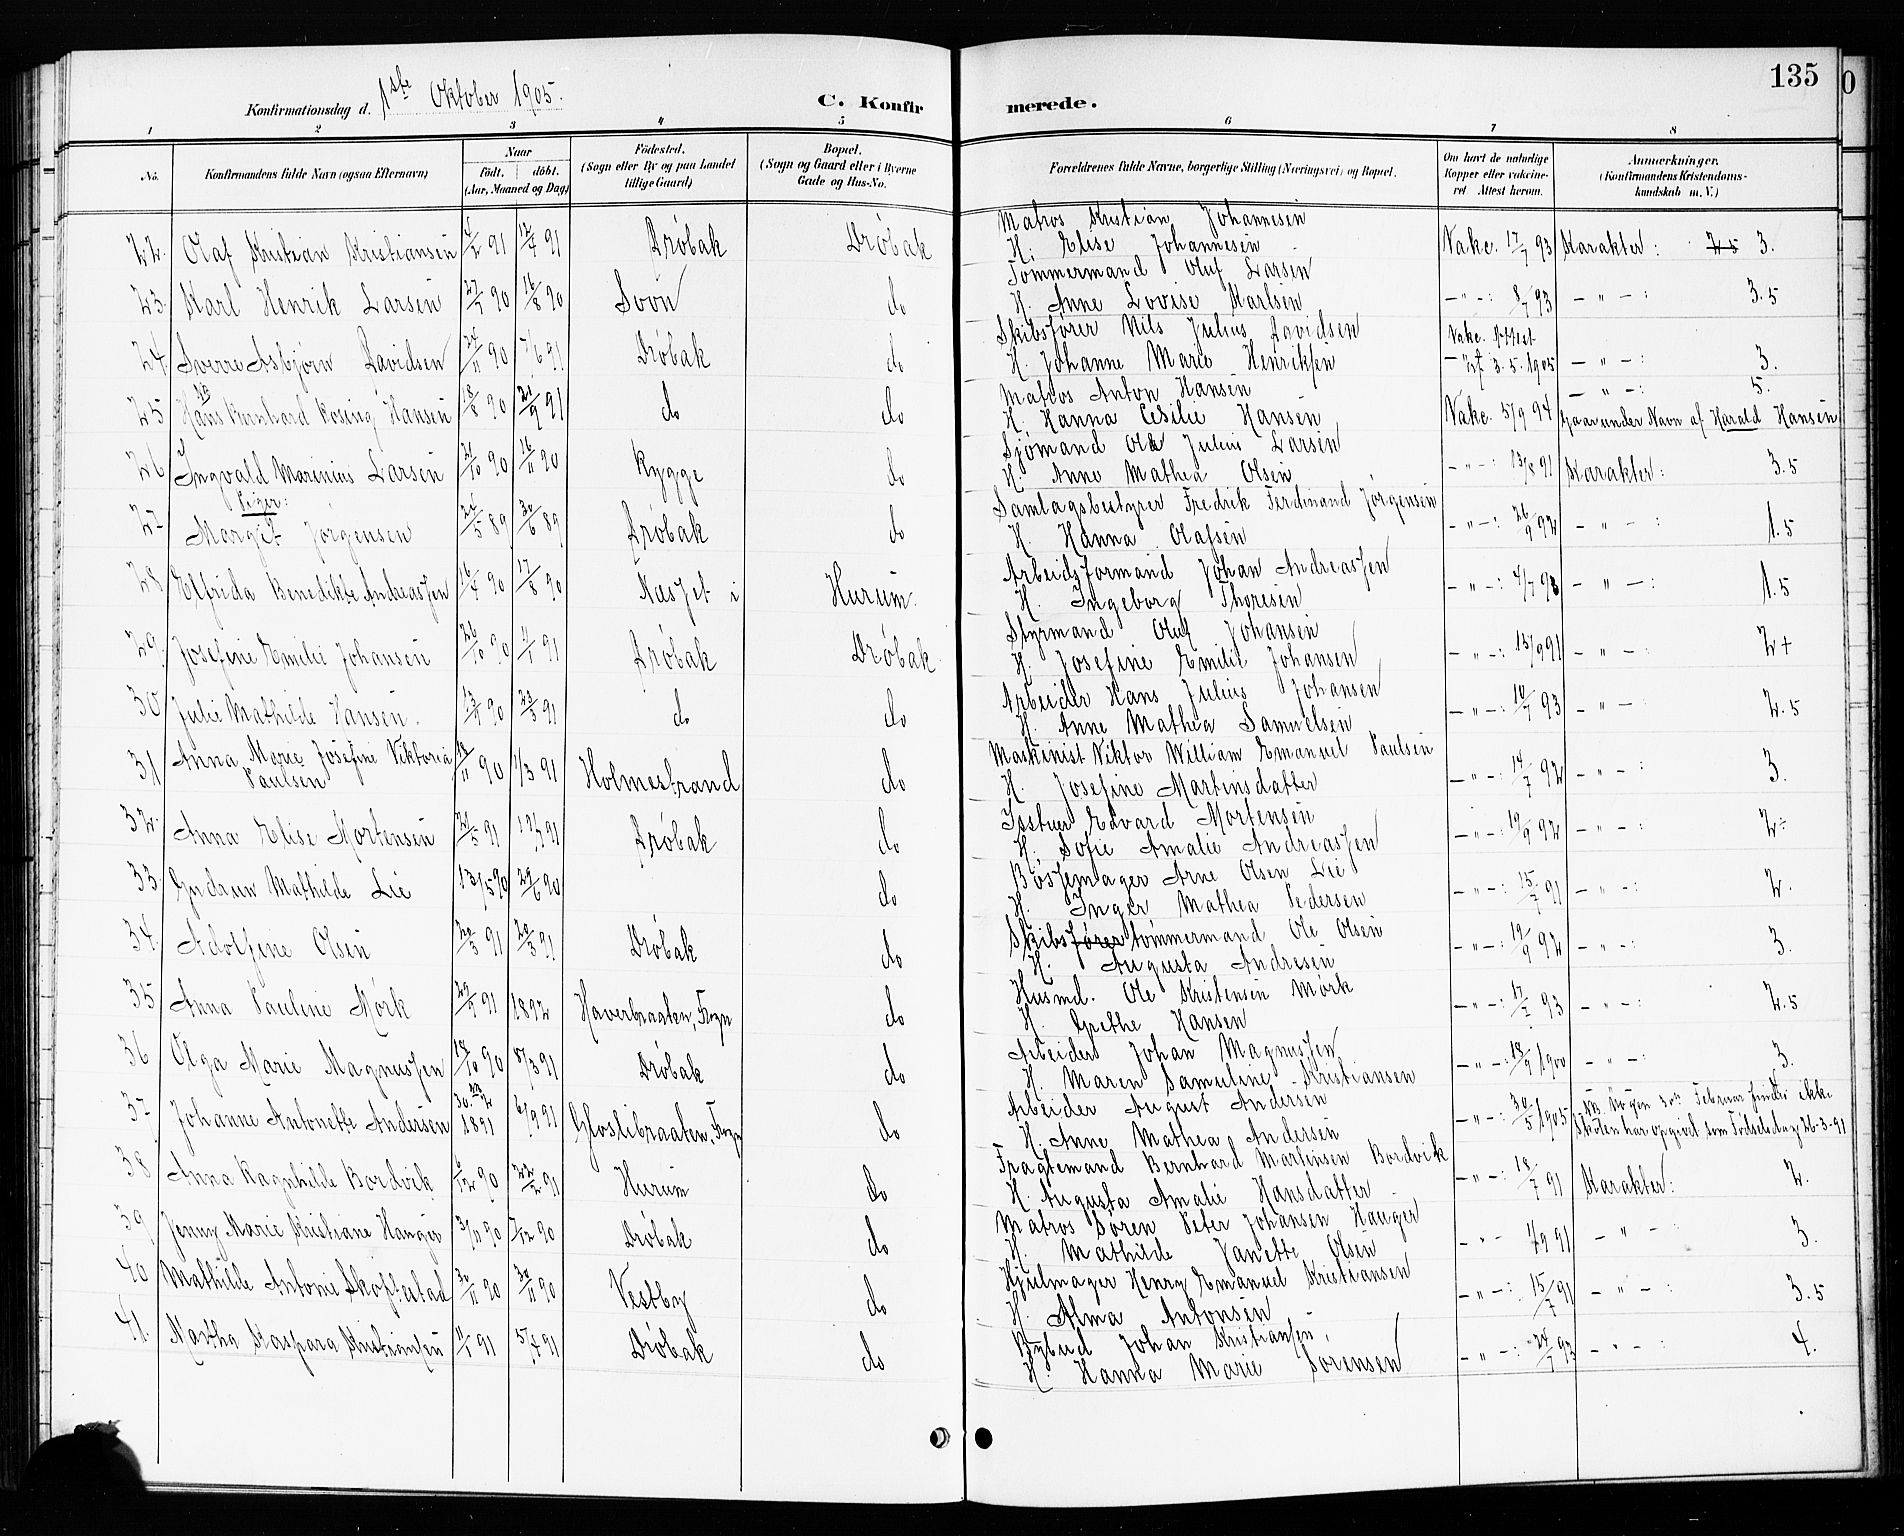 135
Konfirmationsdag d. 1ste Oktober 1905.
C. Konfirmerede.
1 2 3 4 5 6 7 8
No.
Konfirmandens fulde Navn (ogsaa Efternavn)
Naar
Födt. döbt.
(Aar, Maaned og Dag)
Födested.
(Sogn eller By og paa Landet
tillige Gaard)
Bopæl.
(Sogn og Gaard eller i Byerne
Gade og Hus-No.
Forældrenes fulde Navne, borgerlige Stilling (Næringsvei) og Bopæl.
Om havt de naturlige
Kopper eller vakcine-
ret Attest herom.
Anmærkninger.
(Konfirmandens Kristendoms-
kundskab m. V.)
22. Olaf Kristian Kristiansen 4/2 91 12/4 91 Dröbak Dröbak
Matros Kristian Johannesen
H. Elise Johannesen
Vakc. 17/7 93 Karakter: 3.
23. Karl Henrik Larsen 27/7 90 16/8 90 Soon do
Tömmermand Oluf Larsen
H. Anne Lovise Karlsen
— " — : 8/7 93 — " — : 3.5
24. Sverre Asbjörn Davidsen 24/11 90 7/6 91 Dröbak do
Skibsförer Nils Julius Davidsen
H. Johanne Marie Henriksen
Vakc. Attest
3.5.1905 — " — : 3.
25 Hans Bernhard Rosing Hansen 18/8 90 21/9 91 do do
Matros Anton Hansen
H. Hanna Cesilie Hansen
Vakc. 5/9 94 — " — : 5.
gaar under Navn af Harald Hansen
26 Ingvald Marinius Larsen 21/10 90 16/11 90 Rygge do
Sjömand Ole Julius Larsen
H. Anne Mathea Olsen
— " — : 13/8 91 Karakter: 3.5
Piger:
27 Margit Jörgensen 26/5 89 30/6 89 Dröbak do
Samlagsbestyrer Fredrik Ferdinand Jörgensen
H. Hanna Olafsen
— " — : 26/9 92 — " — : 1.5
28. Elfrida Benedikte Andreassen 16/4 90 17/8 90 Næsset i Hurum.
Arbeidsformand Johan Andreassen
H. Ingeborg Thoresen
— " — : 4/7 93 — " — : 1.5
29. Josefine Emilie Johansen 26/10 90 1/1 91 Dröbak Dröbak
Styrmand Oluf Johansen
H. Josefine Emilie Johansen
— " — : 15/9 91 — " — : 2+
30 Julie Mathilde Hansen. 13/7 90 23/3 91 do do
Arbeider Hans Julius Johansen
H. Anne Mathea Samuelsen
— " — : 10/7 93 — " — : 2.5
31 Anna Marie Josefine Viktoria
Paulsen 18/11 90 1/3 91 Holmestrand do
Maskinist Viktor William Emanuel Paulsen
H. Josefine Martinsdatter
— " — : 14/7 92 — " — : 3.
32. Anna Elise Mortensen 21/5 91 19/7 91 Dröbak do
Isstuer Edvard Mortensen
H. Sofie Amalie Andreassen
— " — : 19/9 92 — " — : 2÷
33 Gudrun Mathilde Lie 13/5 90 29/6 90 do
Bössemager Arne Olsen Lie
H. Inger Mathea Pedersen
— " — : 15/7 91 — " — : 2.
34. Adolfine Olsen 20/3 91 29/3 91 Dröbak do
Skibsförer tömmermand Ole Olsen
H. Augusta Andresen
— " — : 19/9 92 — " — : 3.
35 Anna Pauline Mörk 29/9 91 1892 Haverbraaten, Frogn do
Husmd. Ole Kristensen Mörk
H. Grethe Hansen
— " — : 17/7 93 — " — : 2.5
36 Olga Marie Magnussen 18/10 90 8/3 91 Dröbak do
Arbeider Johan Magnussen
H. Maren Samuline Kristiansen
— " — : 18/9 1900 — " — : 3.
37 Johanne Antonette Andersen 30. 2 1891 6/9 91 Gloslibraaten, Frogn do
Arbeider August Andersen
H. Anne Mathea Andersen
— " — : 30/5 1905 NB. Nogen 30te Februar findes ikke
Skolen har opgivet som Födselsdag 26-3-91
38 Anna Ragnhilde Bordvik 6/12 90 22/2 91 Hurum do
Fragtemand Bernhard Martinsen Bordvik
H. Augusta Amalie Hansdatter
— " — : 18/7 91 Karakter: 2.
39 Jenny Marie Kristiane Hauger 3/11 90 7/12 90 Dröbak do
Matros Sören Peter Johansen Hauger
H. Mathilde Janette Olsen
— " — 7/9 91 — " — : 3.
40 Mathilde Antonie Skoftestad 30/11 90 Vestby do
Hjulmager Henry Emanuel Kristiansen
H. Alma Antonsen
— " — : 15/7 91 — " — : 3.5
41. Martha Kaspara Kristiansen 11/1 91 5/4 91 Dröbak do
Bybud Johan Kristiansen.
H. Hanna Marie Sörensen
— " — : 24/7 93 — " — : 4.